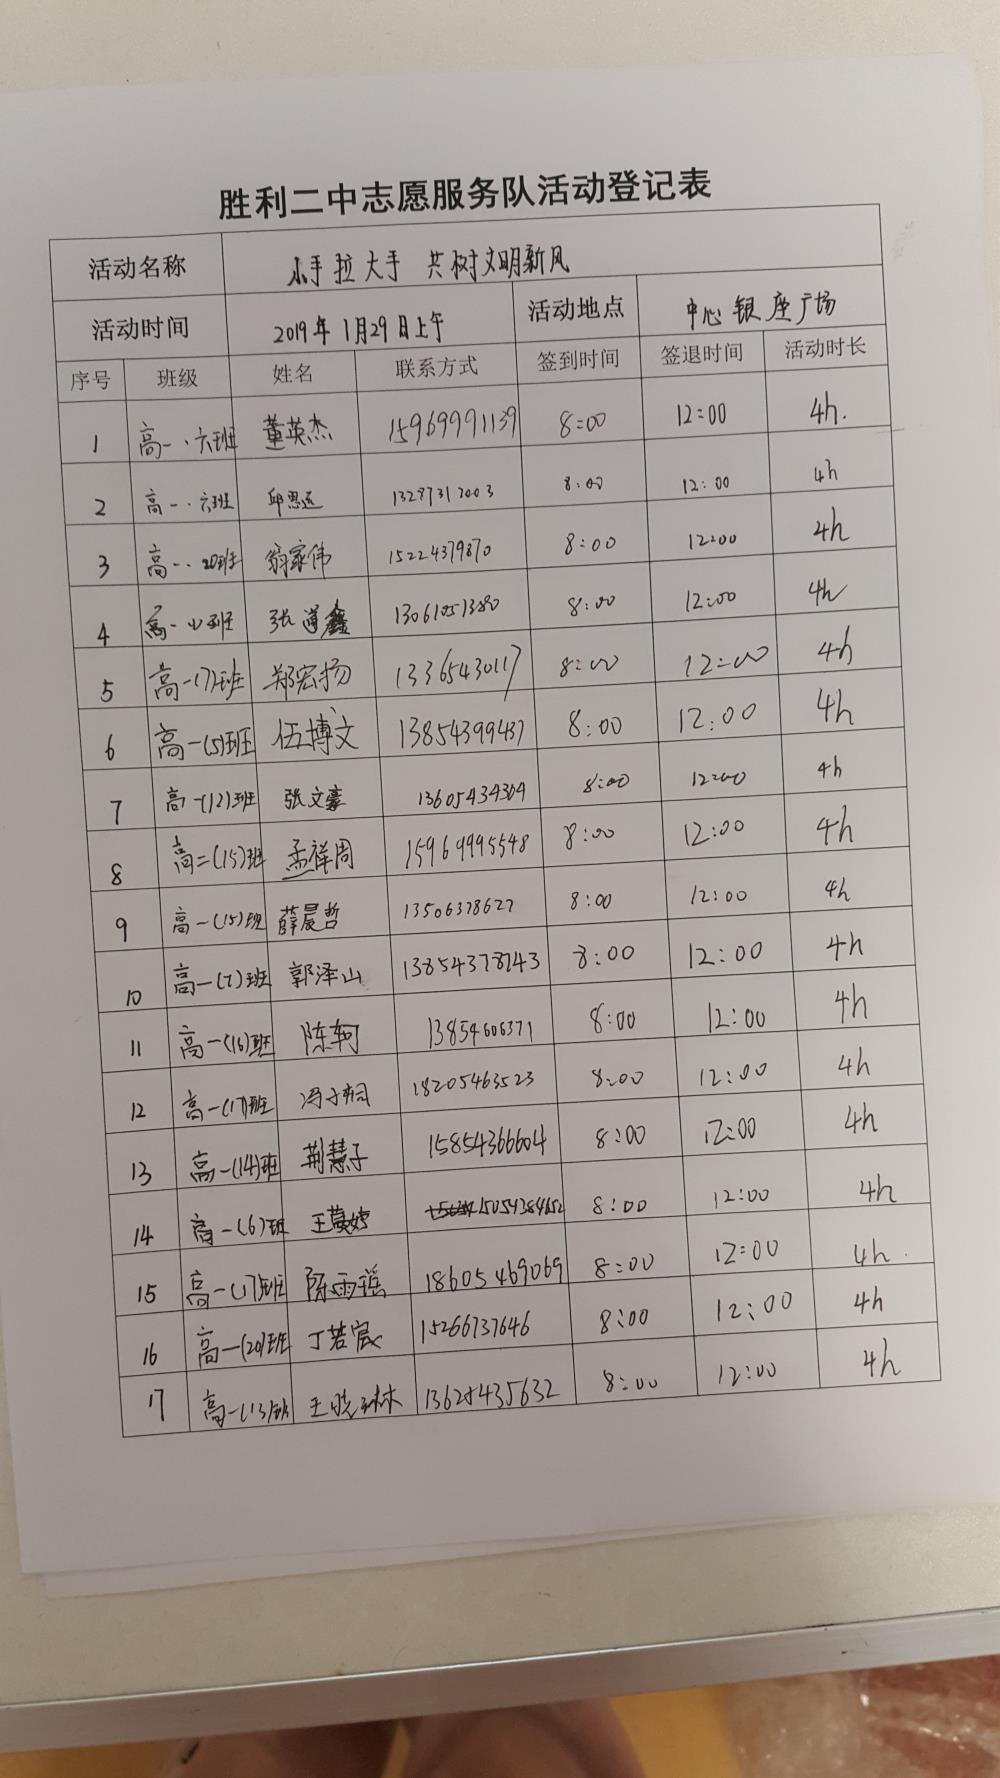 胜利二中志愿服务队活动登记表
活动名称 小手拉大手 共树文明新风
活动时间 2019年1月29日上午 活动地点 中心银座广场
序号 班级 姓名 联系方式 签到时间 签退时间 活动时长
1 高一·六班 董英杰 15969991139 8:00 12:00 4h.
2 高一·六班 邱思远 13287313003 8:00 12:00 4h
3 高一·20班 翁家伟 15224379870 8:00 12:00 4h
4 高一 班 张 鑫 13061051380 8:00 12:00 4h
5 高一(7)班 郑宏扬 13365430117 8:00 12:00 4h
6 高一(5)班 伍博文 13854399437 8:00 12:00 4h
7 高一(12)班 张文豪 13605434304 8:00 12:00 4h
8 高二(15)班 孟祥周 15969995548 8:00 12:00 4h
9 高一(15)班 薛晨哲 13506378627 8:00 12:00 4h
10 高一(2)班 郭泽山 13854378743 8:00 12:00 4h
11 高一(16)班 陈轲 13854606371 8:00 12:00 4h
12 高一(17)班 冯子桐 18205463523 8:00 12:00 4h
13 高一(14)班 荆慧子 15854366604 8:00 12:00 4h
14 高一(6)班 王 婷 15054384652 8:00 12:00 4h
15 高一(17)班 陈雨谣 18605469069 8:00 12:00 4h.
16 高一(20)班 丁若宸 15266737646 8:00 12:00 4h
17 高一(13)班 王晓琳 13625435632 8:00 12:00 4h